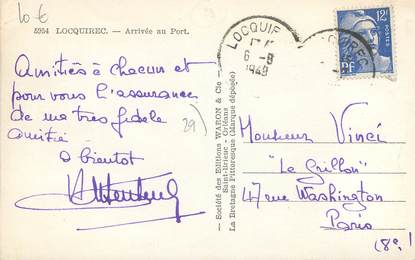 10 €
5954 LOCQUIREC. — Arrivée au Port.
Amitiés à chacun et
pour vous l'assurance
de ma très fidèle
amitié
à bientôt
29)
— Société des Editions WARON & Cie —
Saint-Brieuc - Orléans
La Bretagne Pittoresque (Marque déposée)
LOCQUIREC
6 - 8
1949
12F
POSTES
RF
Monsieur Vinci
"Le Grillon"
47 rue Washington
Paris
(8e!